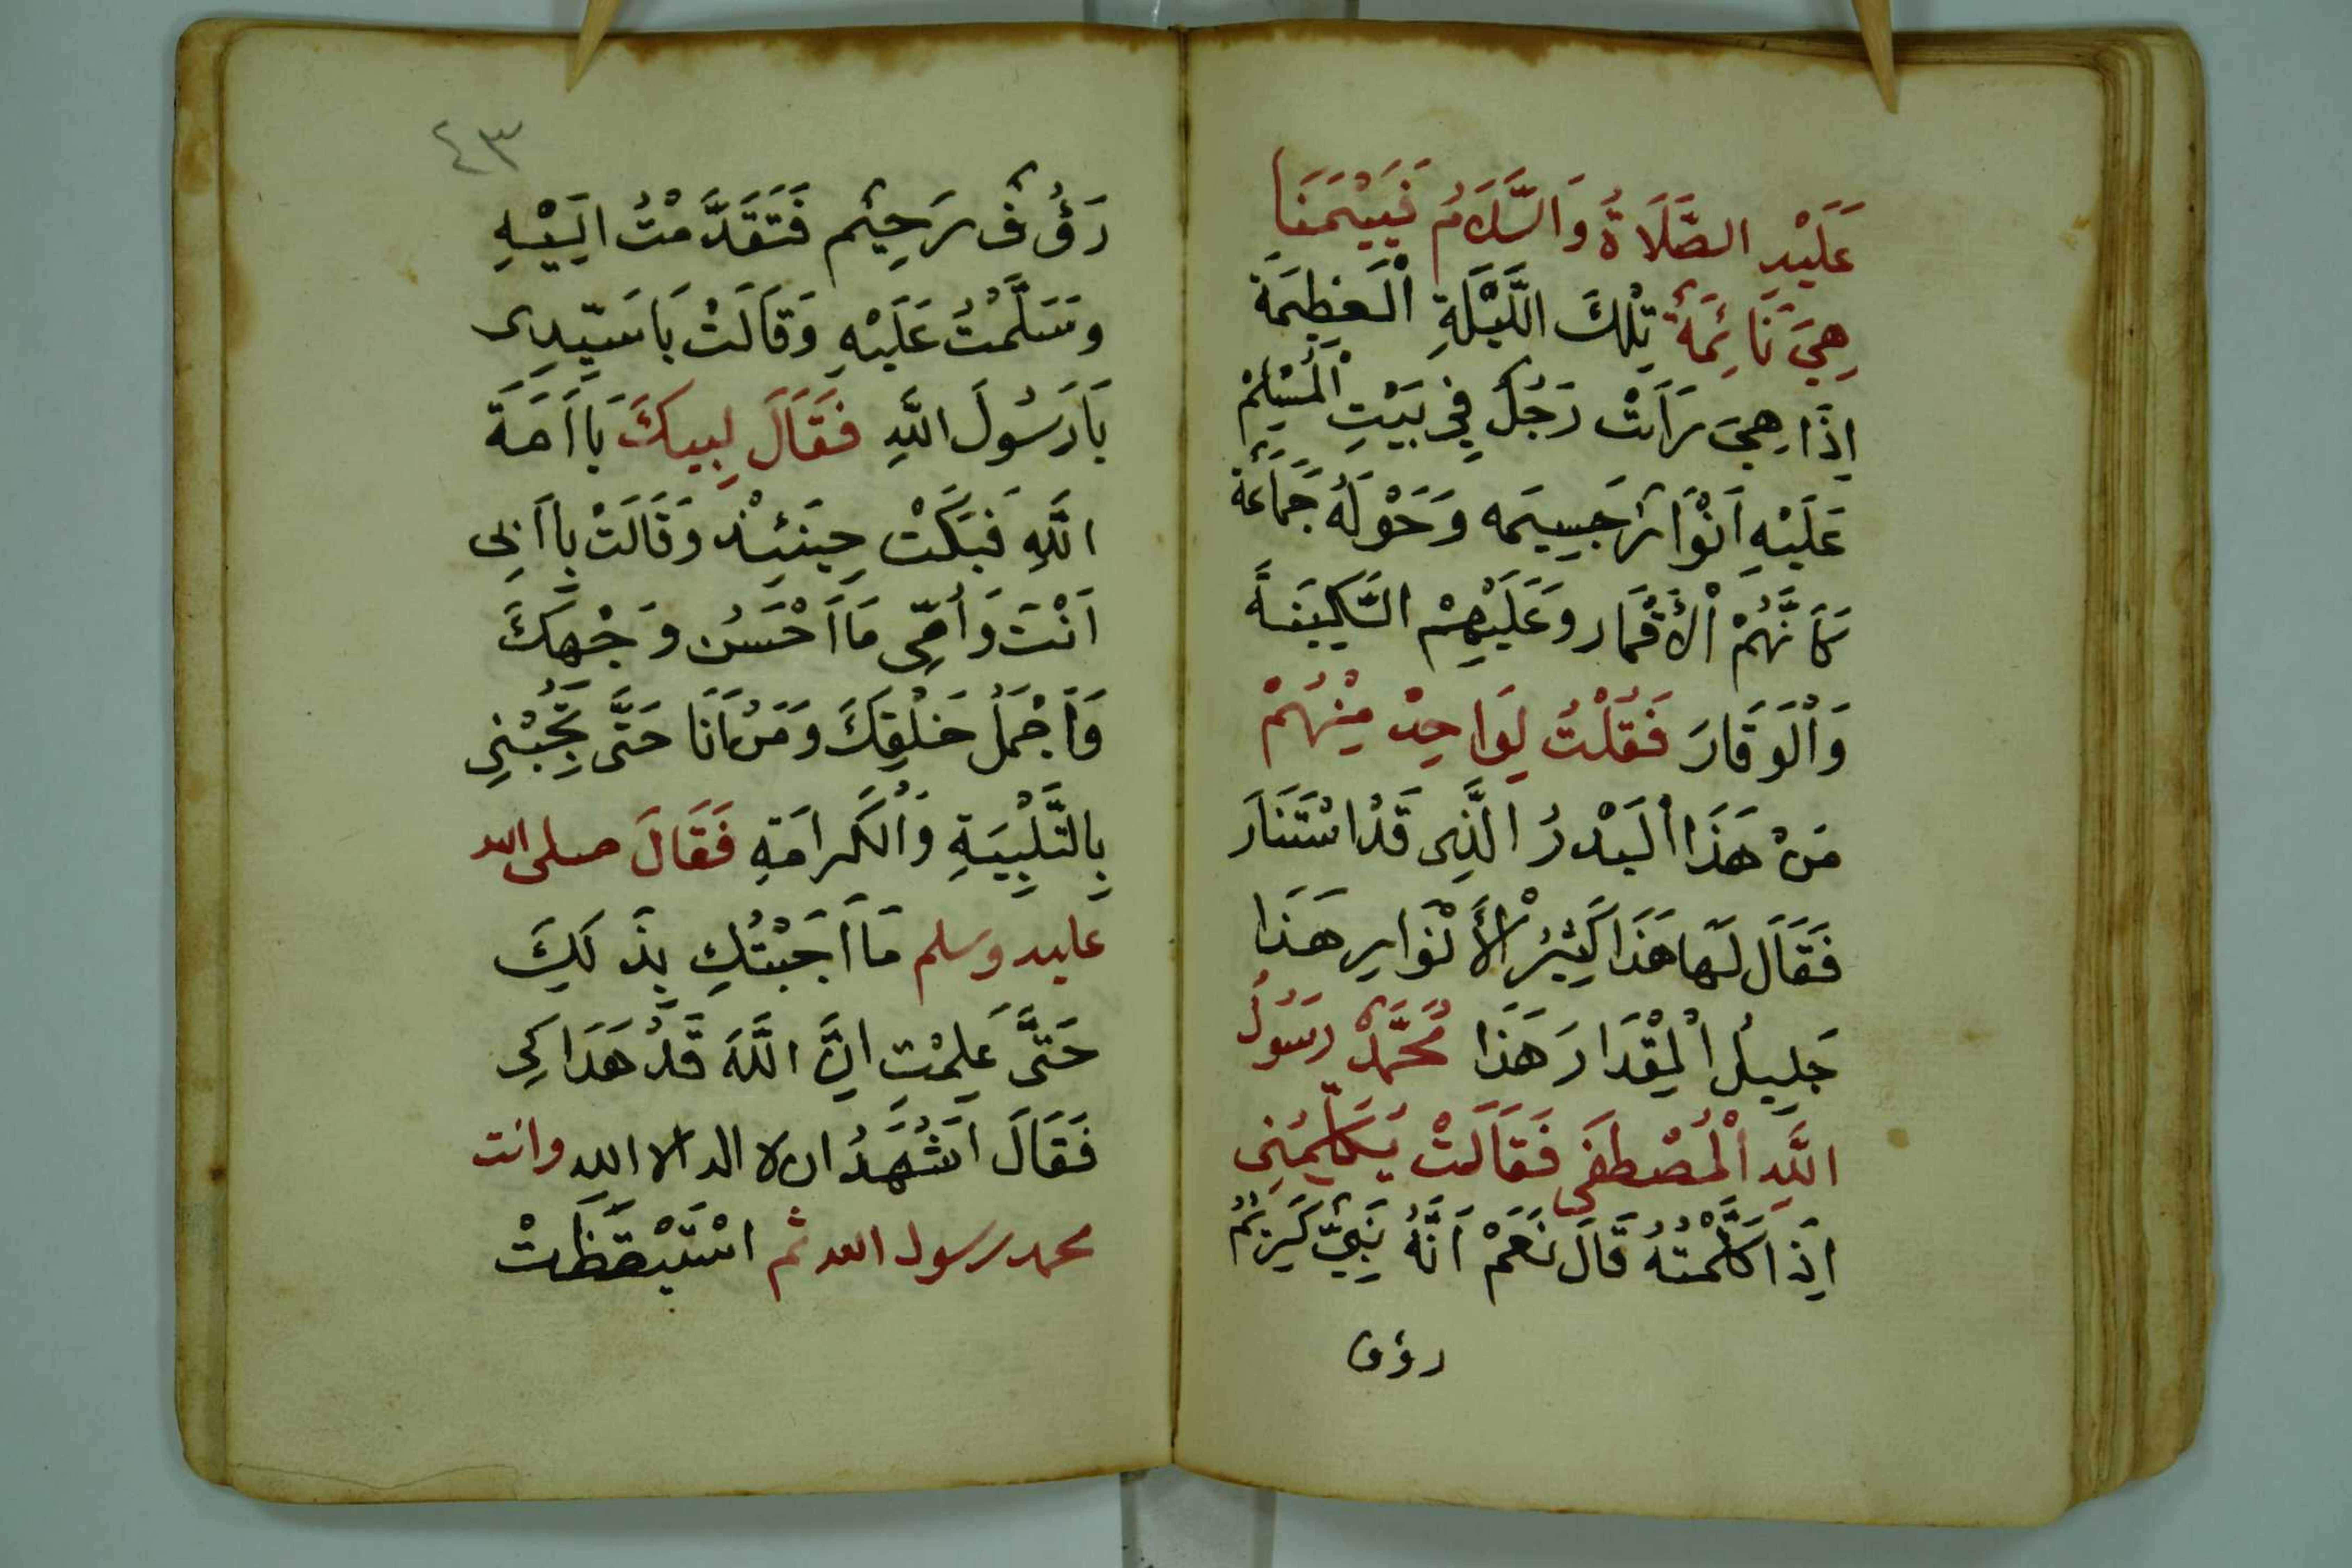 عَلَيْهِ الصَّلَاةُ وَالسَّلَامُ فَبَيْنَمَا
هِيَ نَائِمَةٌ تِلْكَ اللَّيْلَةِ الْعَظِيمَة
اِذَا هِيَ رَاَتْ رَجُلٌ فِي بَيْتِ الْمُسْلِمْ
عَلَيْهِ اَنْوَارٌ جَسِيمَه وَحَوْلَهُ جَمَاعَةٌ
كَاَنَّهُمْ الْأَقْمَار وَعَلَيْهِمْ السَّكِينَةً
وَالْوَقَارَ فَقُلْتُ لِوَاحِدْ مِنْهُمْ
مَنْ هَذَا الْبَدْرُ الَّذِى قَدْ اسْتَنَارَ
فَقَالَ لَهَا هَذَا كَثِيْرُ الْأَنْوَارِ هَذَا
جَلِيلُ الْمِقْدَارَ هَذَا مُحَمَّدٌ رَسُولُ
اللَّهِ الْمُصْطَفَى فَقَالَتْ يُكَلِّمُنِي
اِذَا كَلَّمْتُهُ قَالَ نَعَمْ اَنَّهُ نَبِيٌّ كَرِيْمٌ
رؤف
٤٣
رَؤُفٌ رَحِيْمٌ فَتَقَدَّمْتُ اِلَيْهِ
وسَلَّمْتُ عَلَيْهِ وَقَالَتْ يَاسَيِّدِى
يَارَسُولَ اللَّهِ فَقَالَ لبيكَ يَااَمَةَ
اللَّهِ فَبَكَتْ حِينَئِذْ وَقَالَتْ بِاَبِى
اَنْتَ وَاُمِّى مَا اَحْسَنُ وَجْهِكَ
وَاَجْمَلُ خَلْقِكَ وَمَنْ اَنَا حَتَّى تُجِبْنِي
بِالتَّلْبِيَةِ وَالْكَرامَةِ فَقَالَ صلى الله
عليه وسلم مَا اَجَبْتُكِ بِذَلِكَ
حَتَّى عَلِمْتِ اِنَّ اللَّهَ قَدْ هَدَاكِي
فَقَالَ اَشْهَدُ ان لا اله الا الله وانت
محمد رسول الله ثم اسْتَيْقَظَتْ